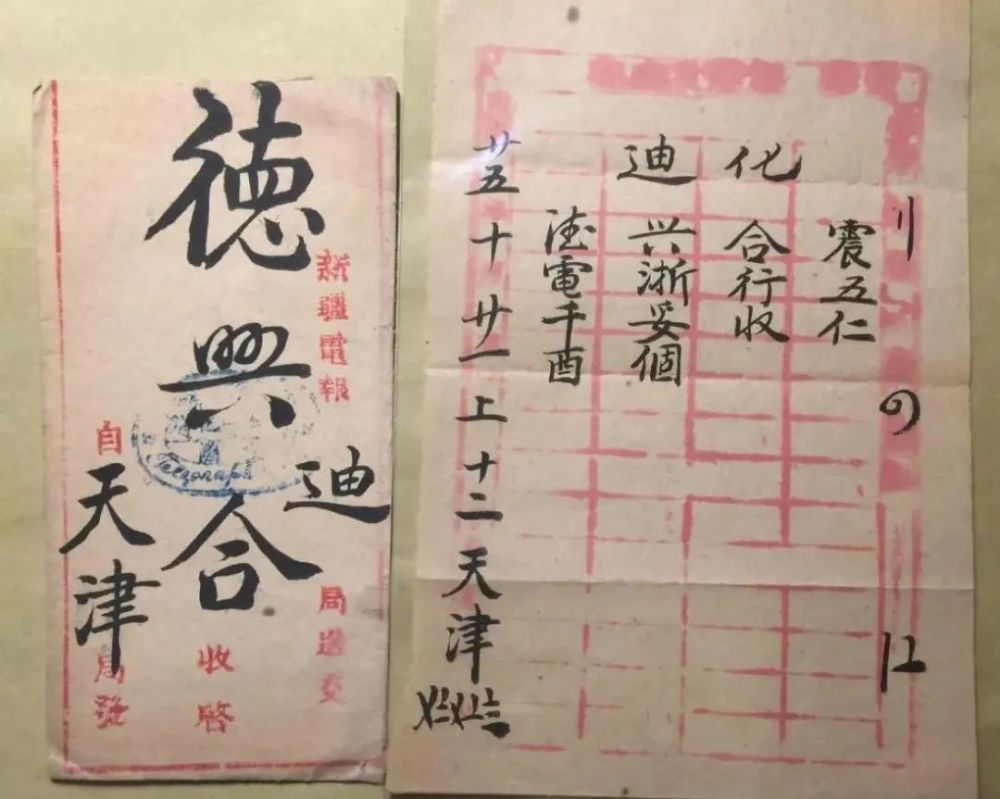 新疆電報迪局送交
德興合收啓
自天津局發
震五仁
化合行收
迪兴浙妥個
電千酉
廿五十廿一上十二天津